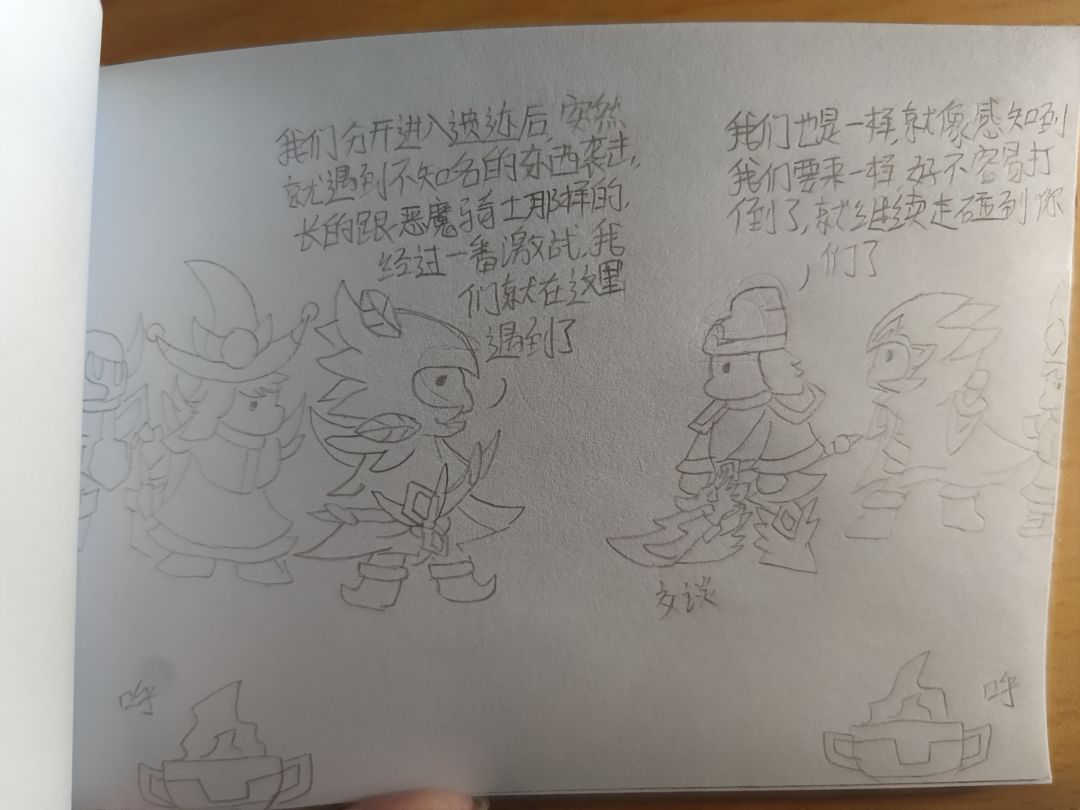 我们分开进入遗迹后,突然
就遇到不知名的东西袭击,
长的跟恶魔骑士那样的,
经过一番激战,我
们就在这里
遇到了
我们也是一样,就像感知到
我们要来一样,好不容易打
倒了,就继续走碰到你
们了
交谈
呼
呼